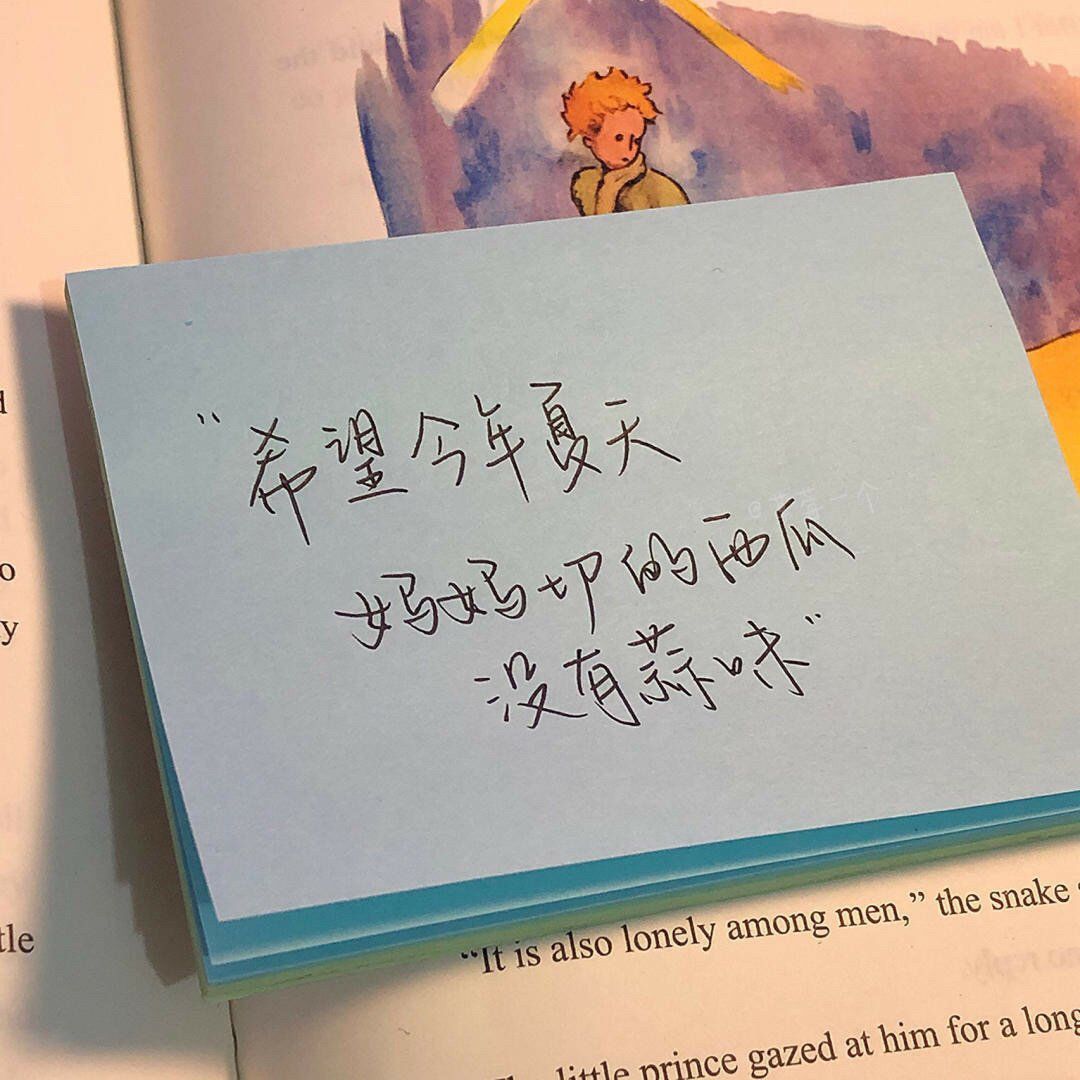 “希望今年夏天
妈妈切的西瓜
没有蒜味”
o
y
tle
“It is also lonely among men,” the snake
little prince gazed at him for a long